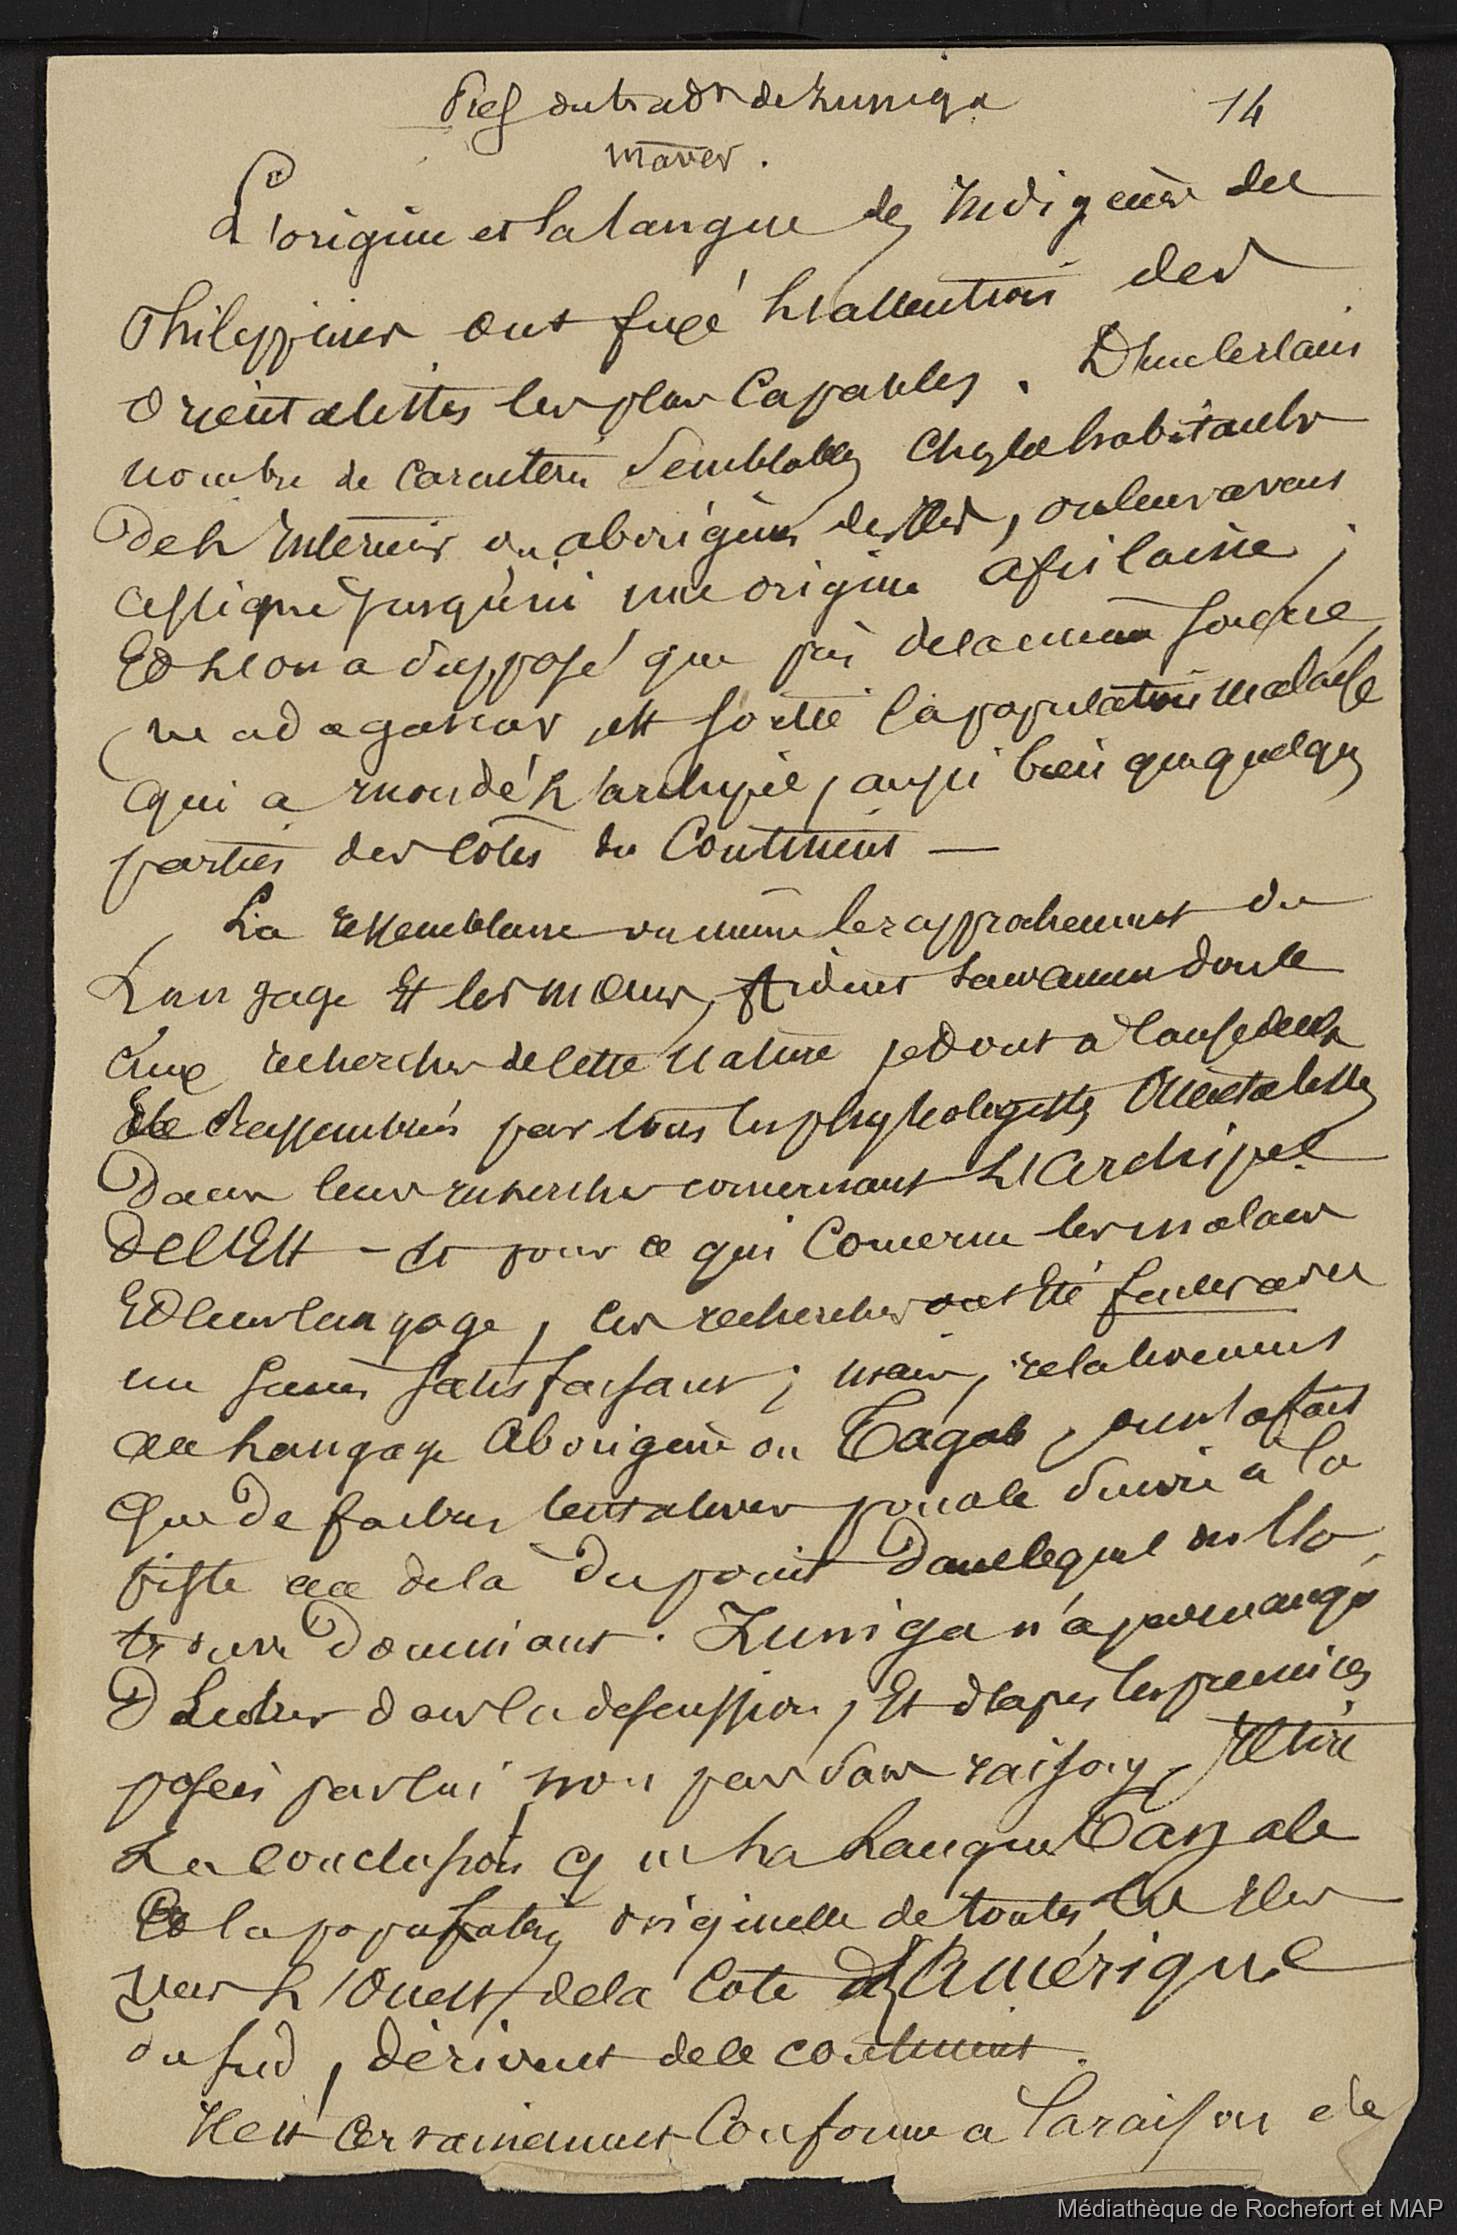 Pref du trad<sup>r</sup> de Zuniga
14
maver.
L'origine et la langue des Indigènes des
Philippines ont fixé l'attention des
Orientalistes les plus capables. D'un certain
nombre de caractères semblables chez les habitants
de l'Intérieur ou aborigènes des Iles, on leur avait
assigné jusqu'ici une origine africaine ;
Et l'on a supposé que de la même source,
Madagascar est sortie la population malaise
qui a inondé l'archipel, aussi bien que quelques
parties des Côtes du Continent —
La ressemblance ou même le rapprochement du
Langage Et les mœurs, aident sans aucun doute
aux recherches de cette nature
rassemblés par tous les Orientalistes
Dans leurs recherches concernant L'Archipel
De l'Est - Et pour ce qui Concerne les malais
Et leur langage, les recherches ont été faites avec
un succès satisfaisant ; mais, relativement
au Langage Aborigène ou Tagale, on n'a fait
que de faibles tentatives pour le suivre à la
piste au delà du point dans lequel on l'a
trouvé Dominant. Zuniga n'a pas manqué
D'Entrer dans la discussion, Et d'après les prémices
posées par lui non pas sans raisons, retire
La conclusion que La Langue Tagale
Et la population originelle de toutes les Iles
vers L'Ouest, de la Côte d'Amérique
du Sud, dérivent de ce continent.
Il est certainement Conforme à la raison de
Médiathèque de Rochefort et MAP